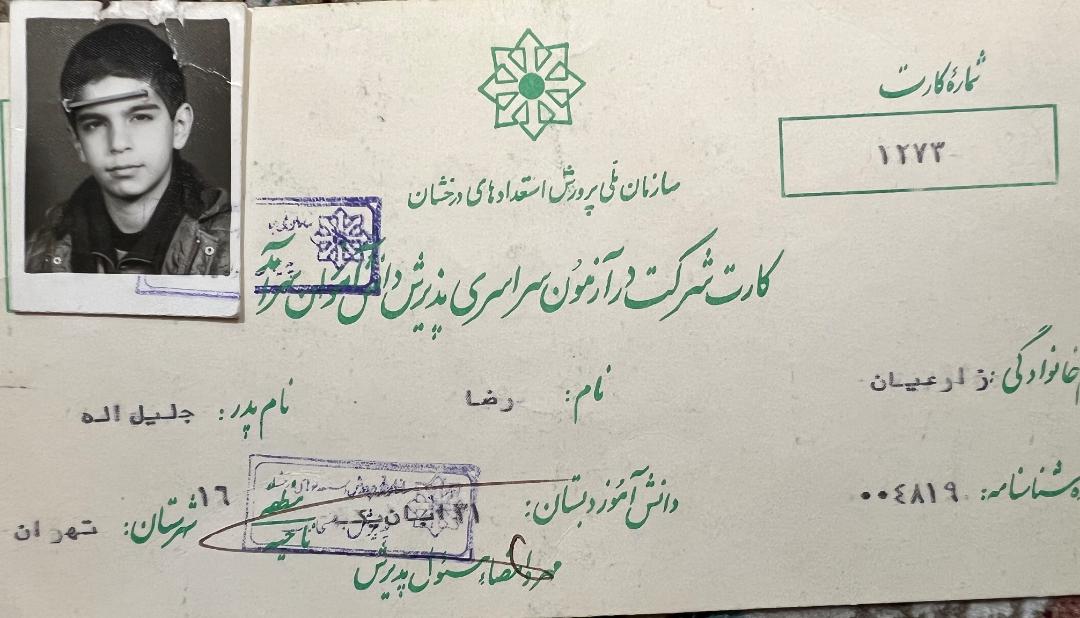 شمارهٔ کارت
۱۲۷۳
سازمان ملی پرورش استعدادهای درخشان
کارت شرکت در آزمون سراسری پذیرش دانش‌آموزان سرآمد
خانوادگی: زارعیان
نام: رضا
نام پدر: جلیل اله
شناسنامه: ۰۰٤۸۱۹
دانش‌آموز دبستان: ۳۱
منطقه ۱۶
ناحیه
شهرستان: تهران
مهر و امضاء مسئول پذیرش